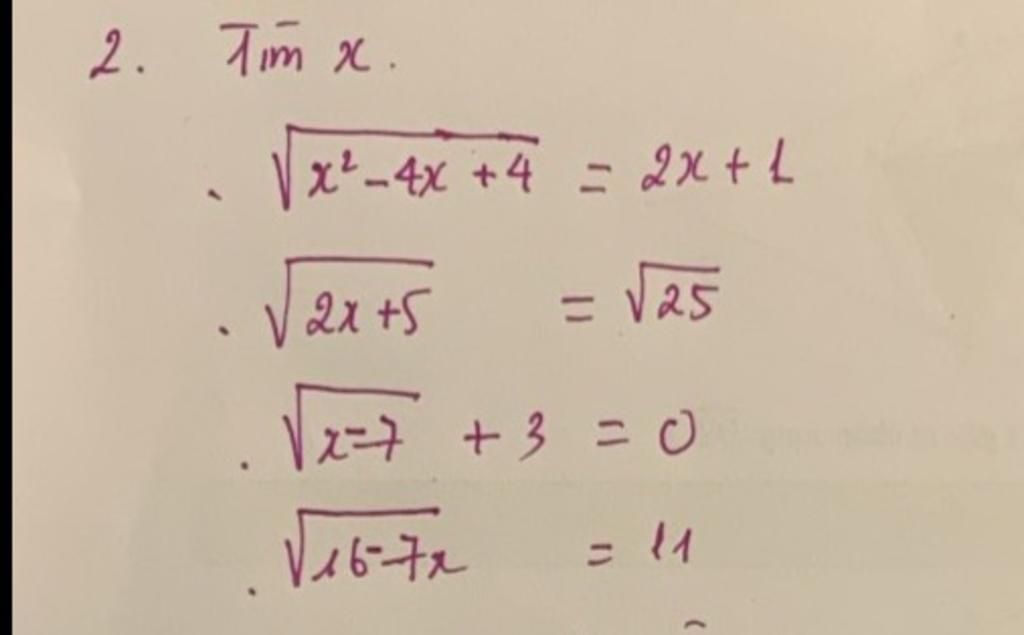 2. Tìm x.
. √(x² - 4x + 4) = 2x + 1
. √(2x + 5) = √25
. √(x - 7) + 3 = 0
. √(16 - 7x) = 11